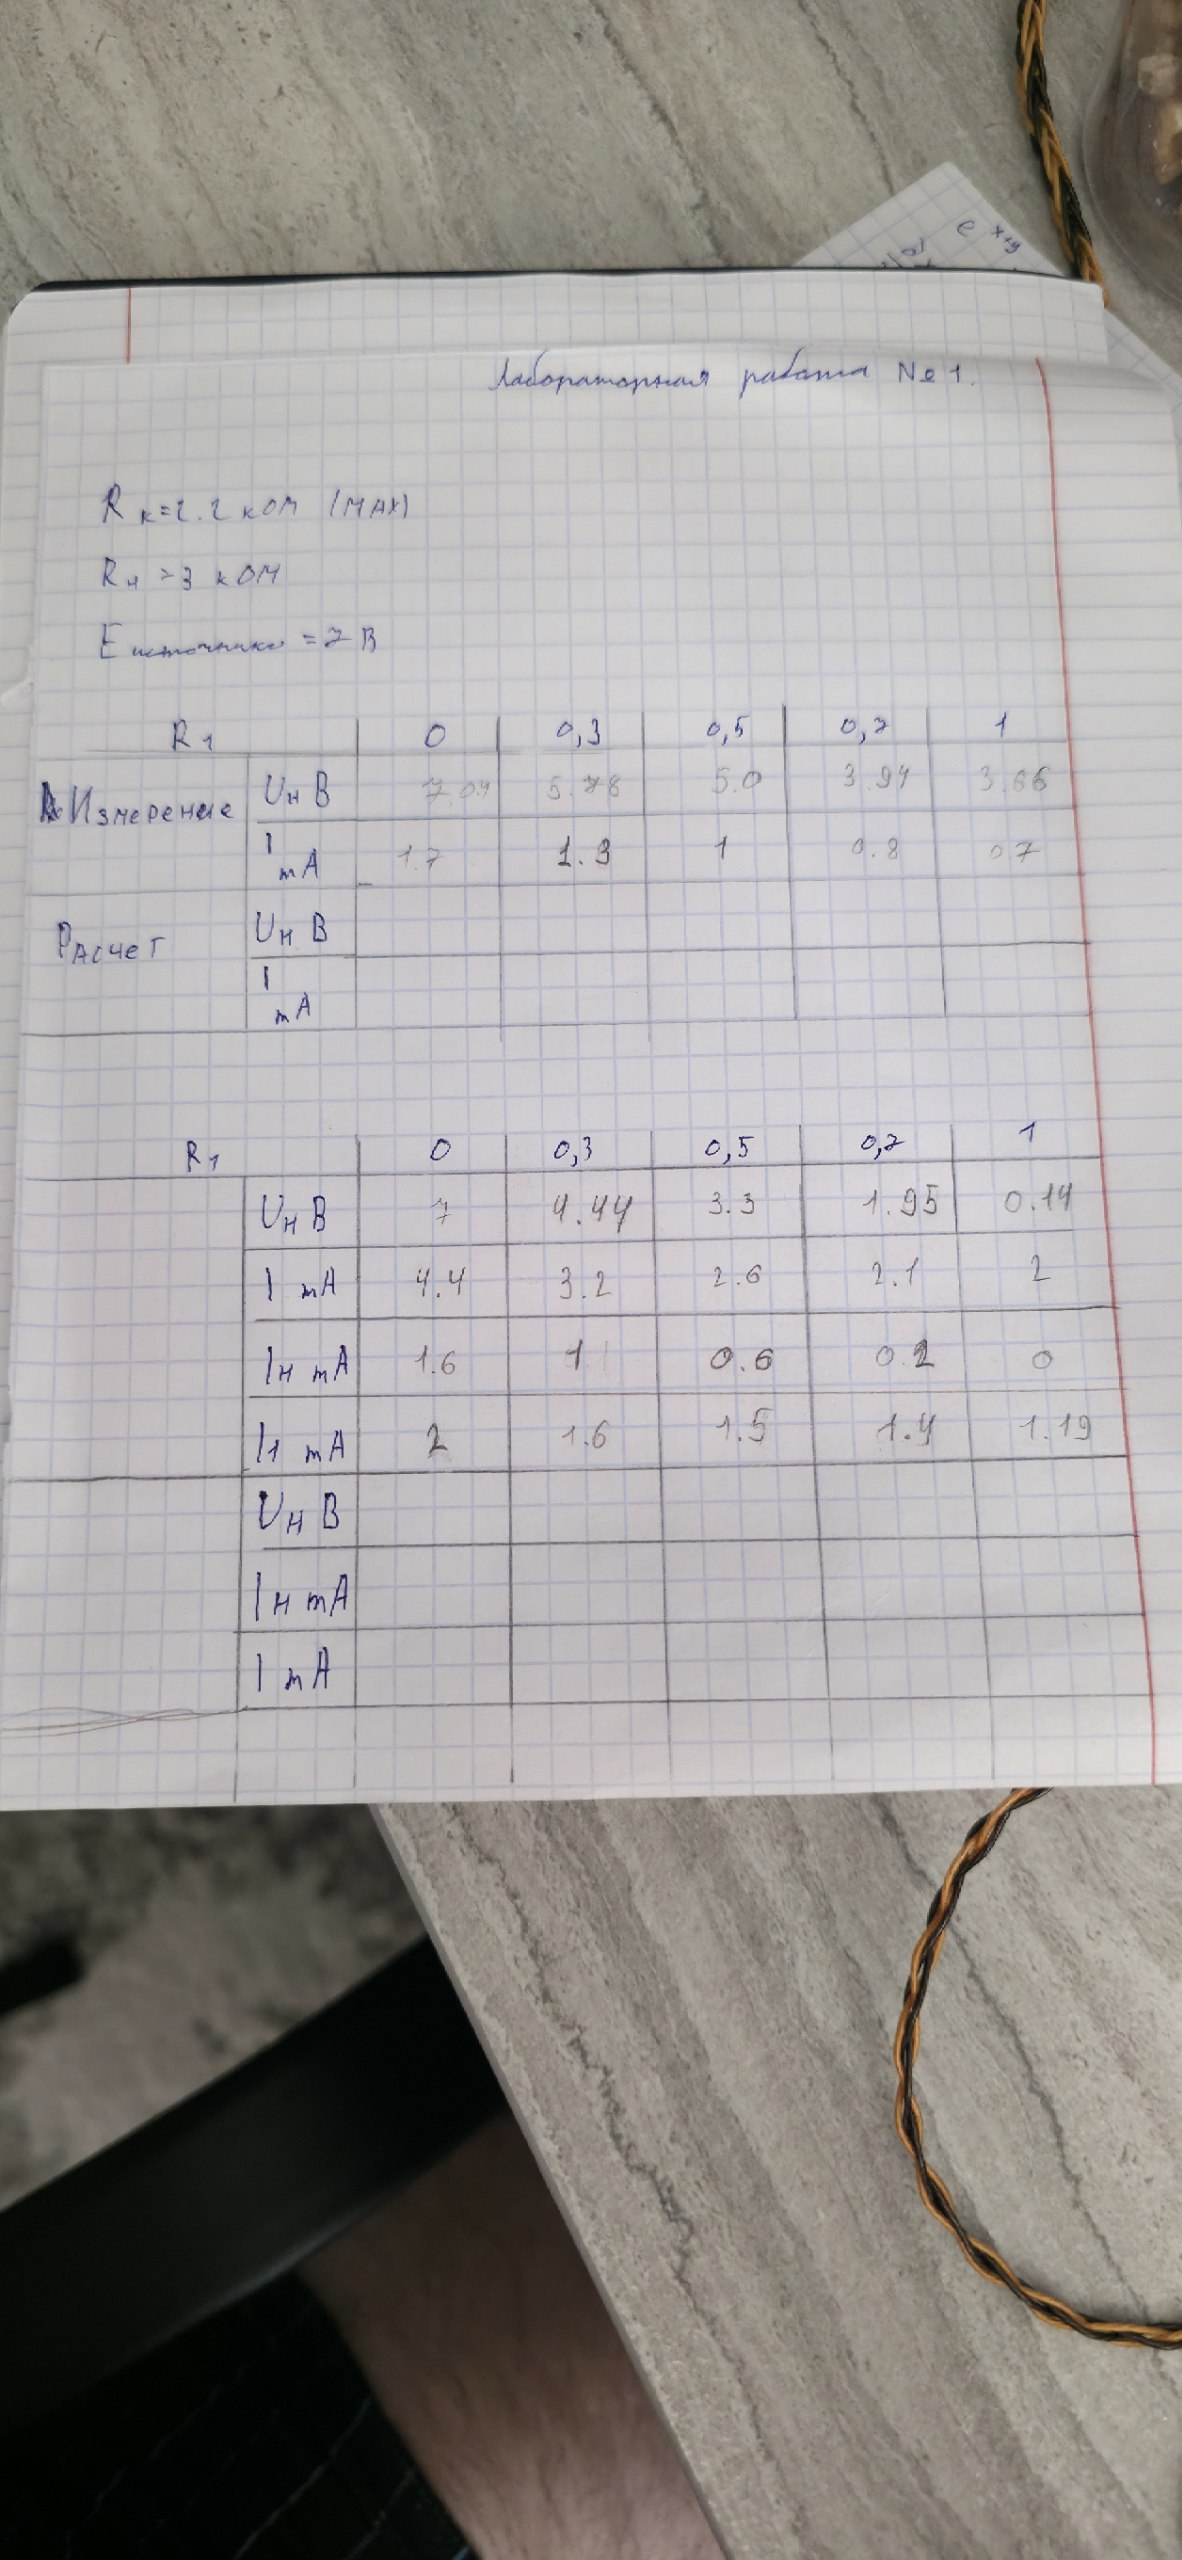 Лабораторная работа № 1.
R к = 2.2 кОМ (МАХ)
R н = 3 кОМ
E источника = 7 В
R 1 0 0,3 0,5 0,7 1
Измерение Uн В 7.04 5.78 5.0 3.94 3.66
I mA 1.7 1.3 1 0.8 0.7
Расчет Uн В
I mA
R 1 0 0,3 0,5 0,7 1
Uн В 7 4.44 3.3 1.95 0.14
I mA 4.4 3.2 2.6 2.1 2
Iн mA 1.6 1 0.6 0.2 0
I1 mA 2 1.6 1.5 1.4 1.19
Uн В
Iн mA
I mA